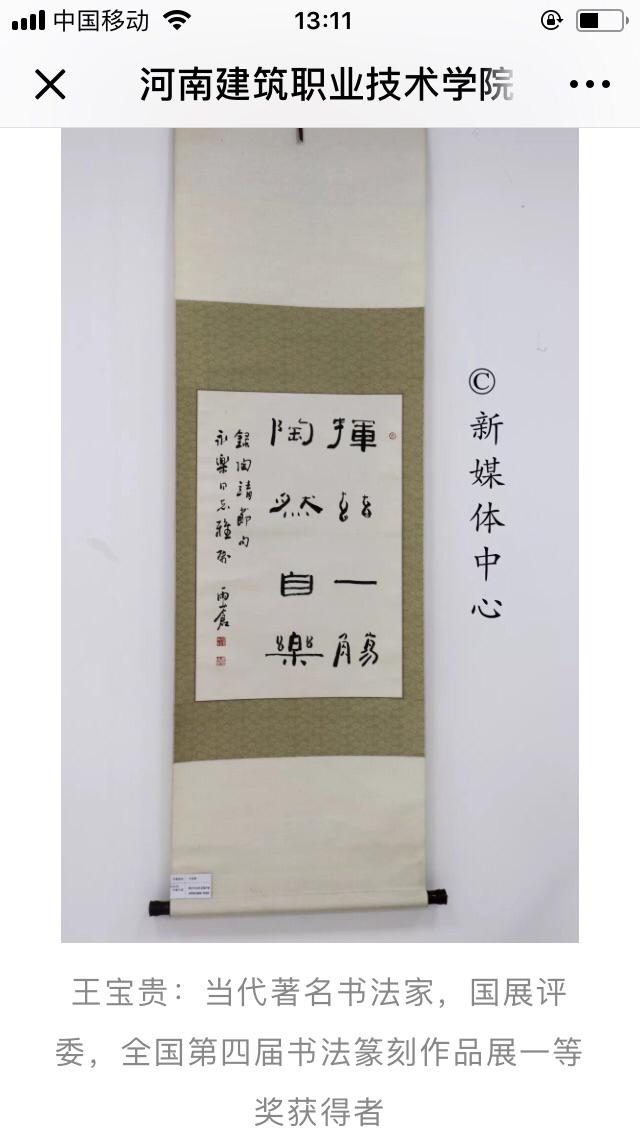 中国移动
13:11
河南建筑职业技术学院
揮茲一觴
陶然自樂
錄陶靖節句
永樂同志雅屬 雨蒼
©新媒体中心
王宝贵：当代著名书法家，国展评
委，全国第四届书法篆刻作品展一等
奖获得者